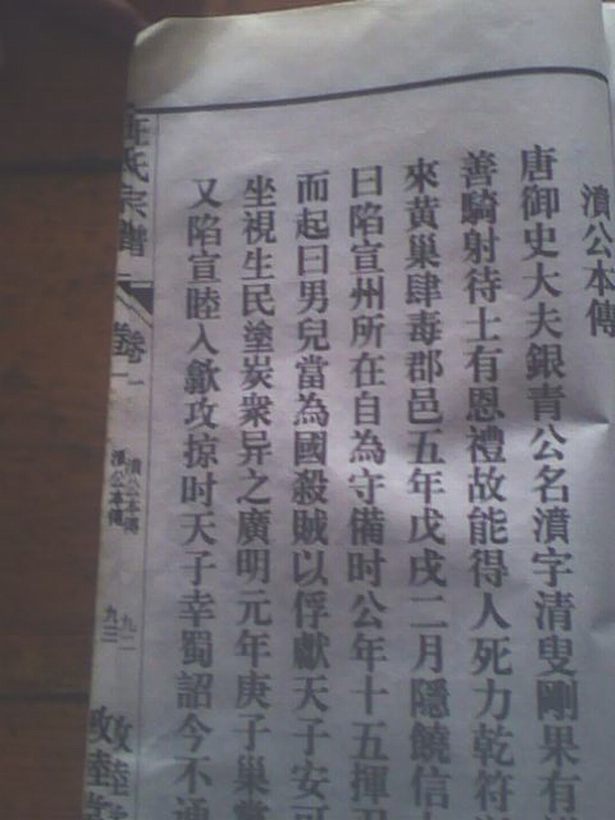 濆公本傳
唐御史大夫銀青公名濆字清叟剛果有
善騎射待士有恩禮故能得人死力乾符
來黃巢肆毒郡邑五年戊戌二月隱饒信
曰陷宣州所在自為守備时公年十五揮
而起曰男兒當為國殺賊以俘獻天子安可
坐視生民塗炭衆异之廣明元年庚子巢黨
又陷宣睦入歙攻掠时天子幸蜀詔令不通
汪氏宗譜
卷一
卷一
濆公本傳
濆公本傳
九二
九三
敦睦堂
敦睦堂